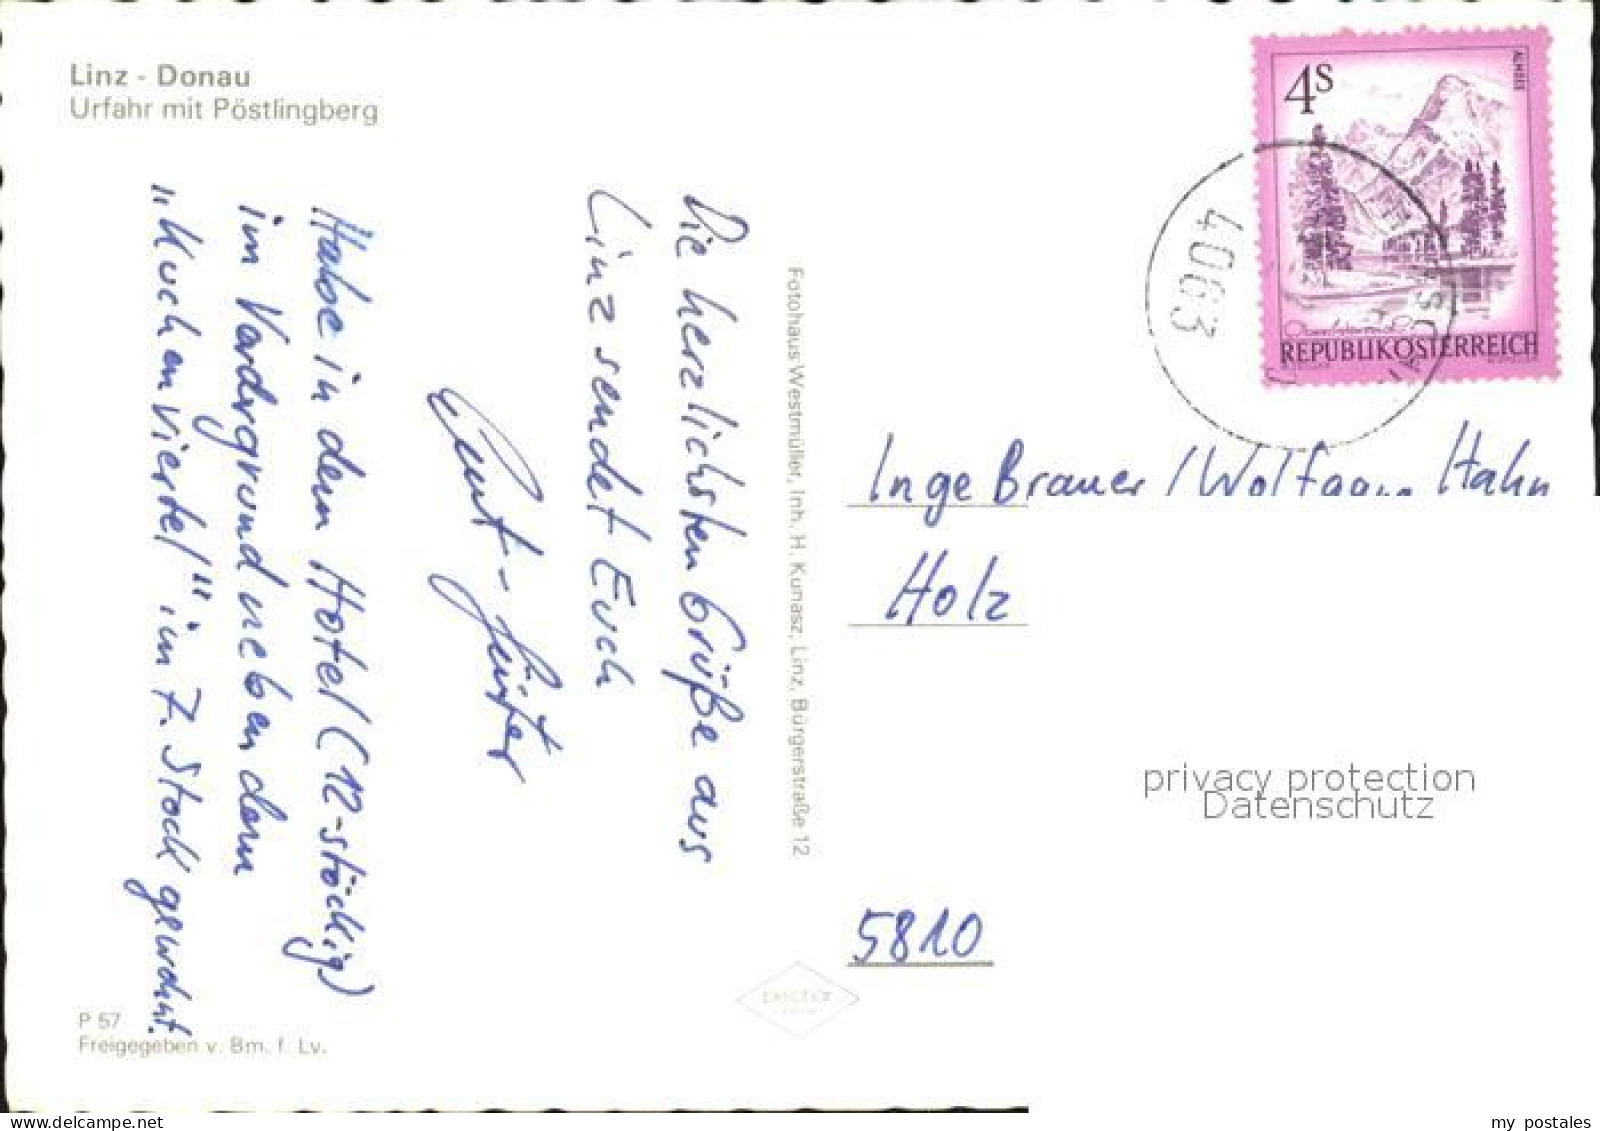 Linz - Donau
Urfahr mit Pöstlingberg
Die herzlichsten Grüße aus
Linz sendet Euch
Habe in dem Hotel (12-stöckig)
im Vordergrund neben dem
"Kuchenviertel" im 7. Stock gewohnt.
Fotohaus Westmüller, Inh. H. Kunasz, Linz, Bürgerstraße 12
4S
ALMSEE
REPUBLIK ÖSTERREICH
4063
Inge Brauer / Wolfgang Hahn
Holz
5810
privacy protection
Datenschutz
P 57
Freigegeben v. Bm. f. Lv.
delcampe.net
my_postales